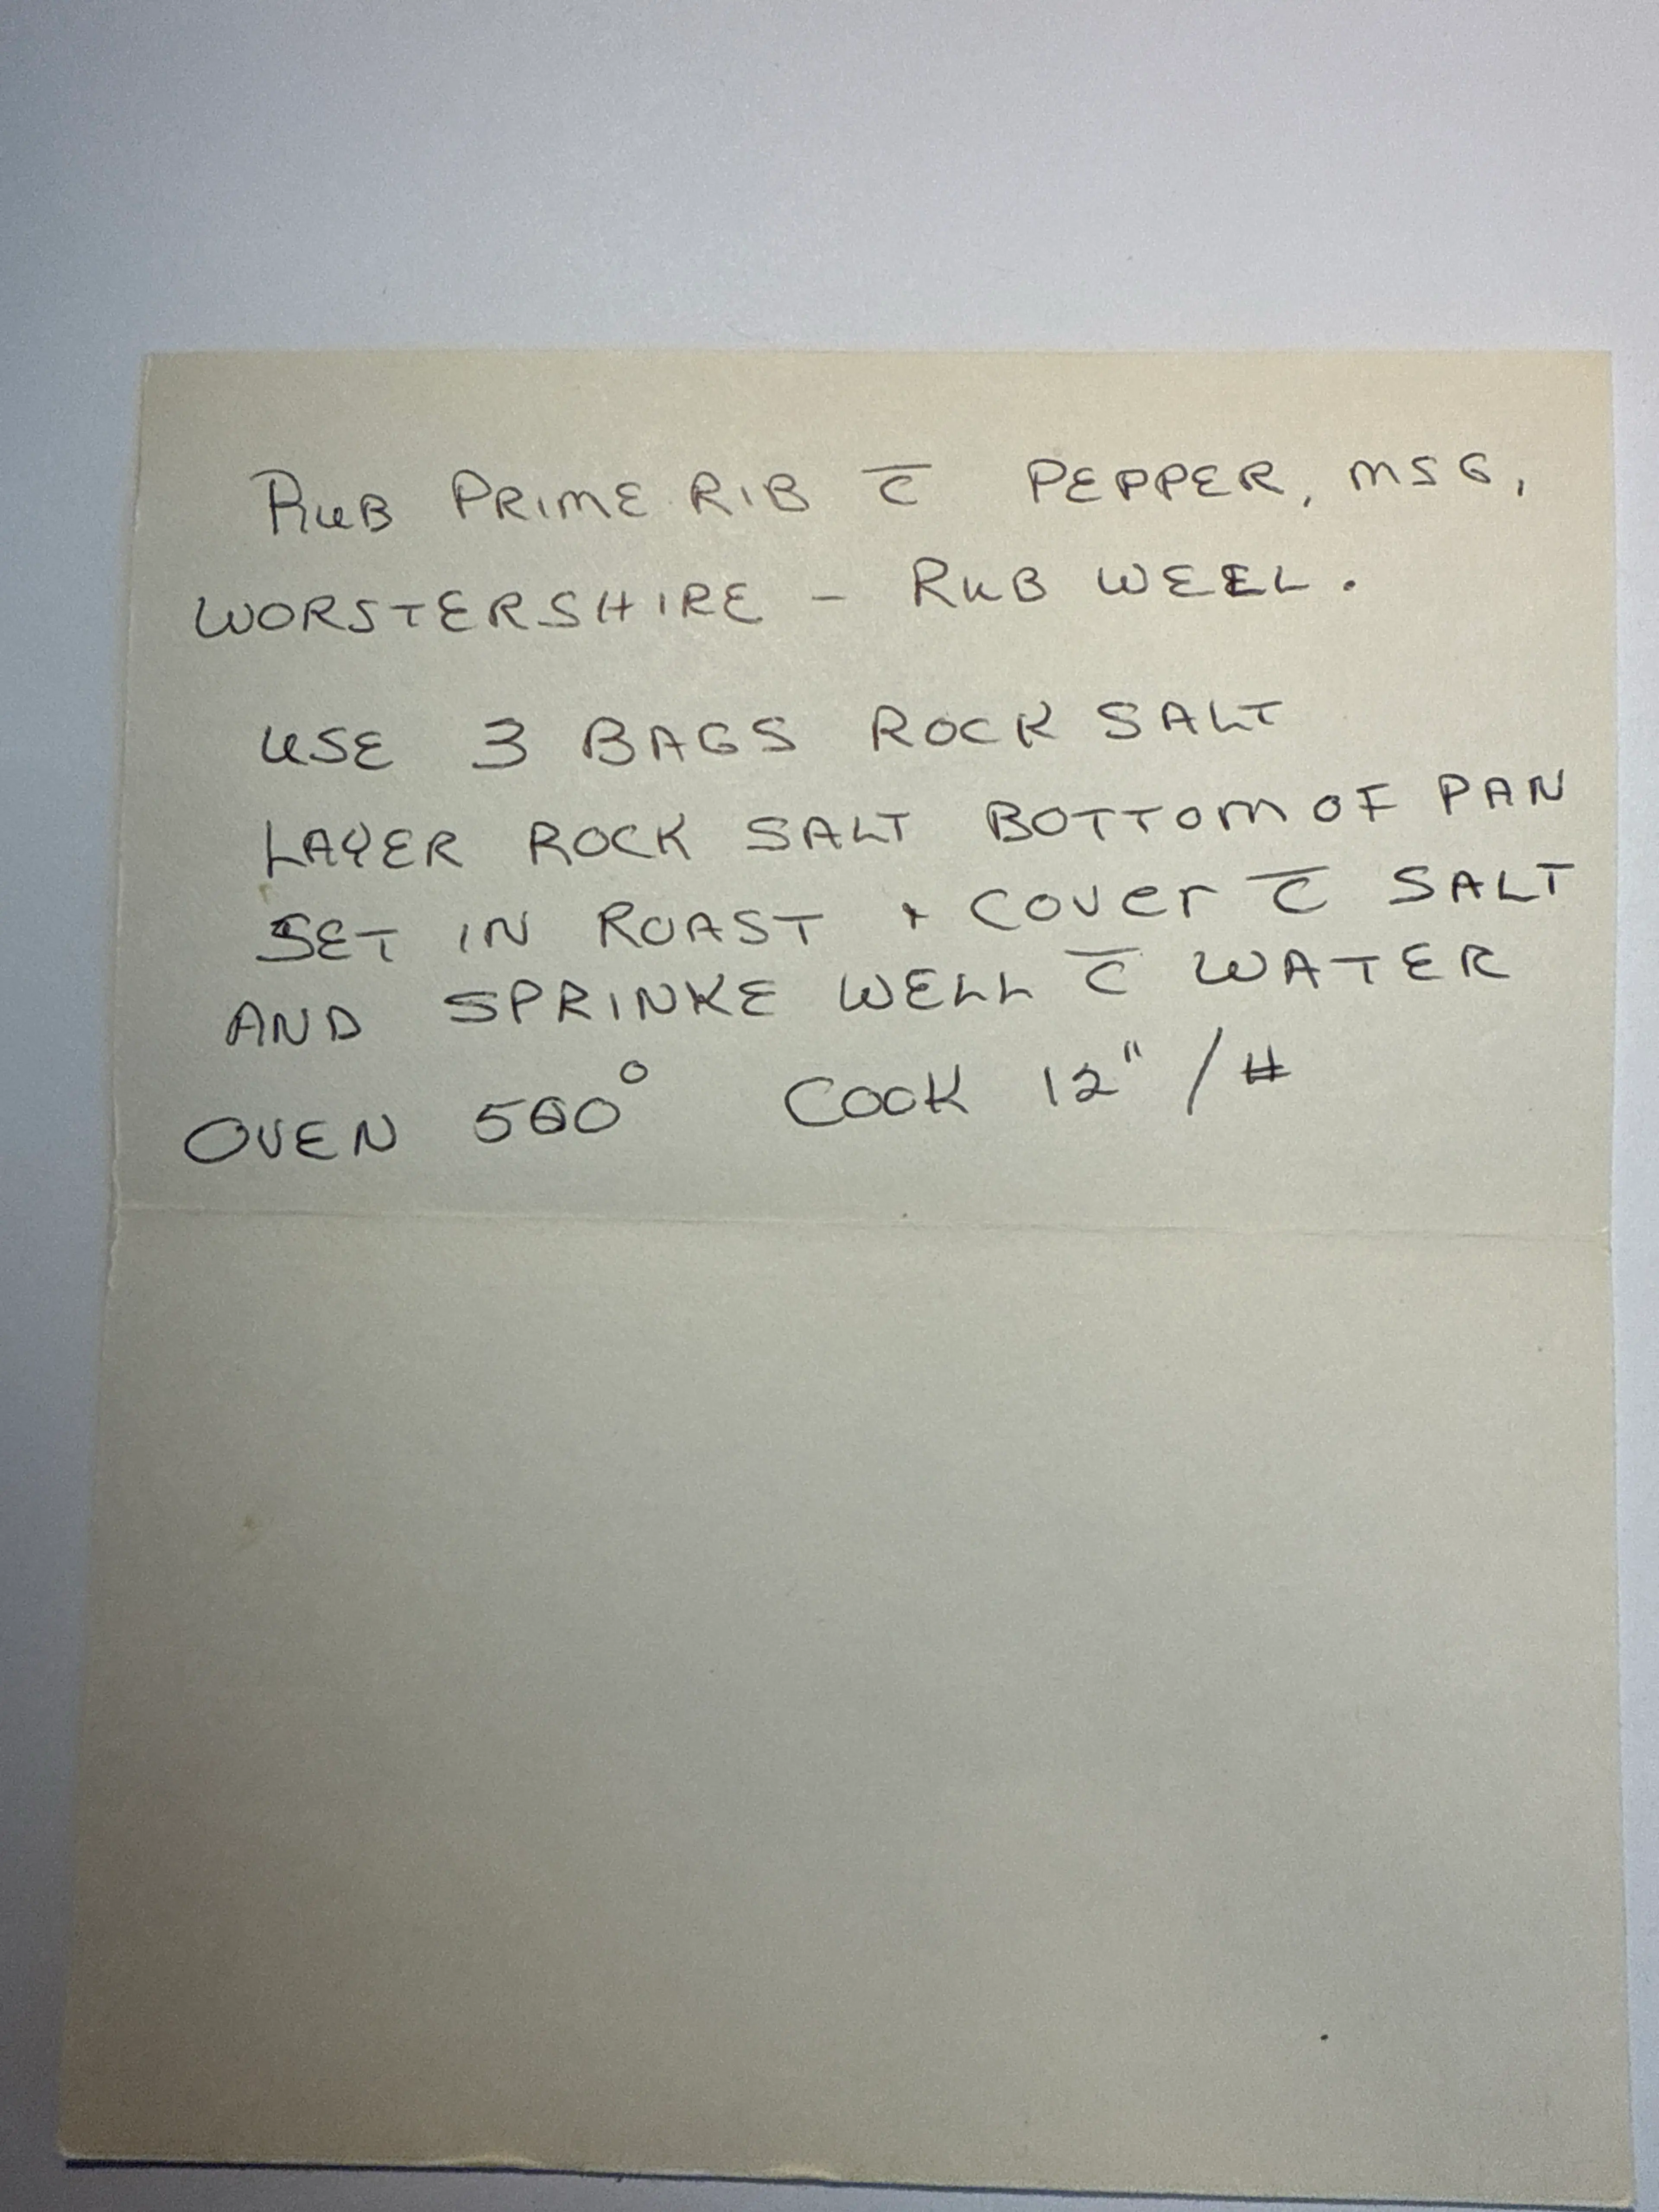 RUB PRIME RIB c̅ PEPPER, MSG,
WORSTERSHIRE - RUB WEEL.
USE 3 BAGS ROCK SALT
LAYER ROCK SALT BOTTOM OF PAN
SET IN ROAST + COVER c̅ SALT
AND SPRINKE WELL c̅ WATER
OVEN 500° COOK 12" / #